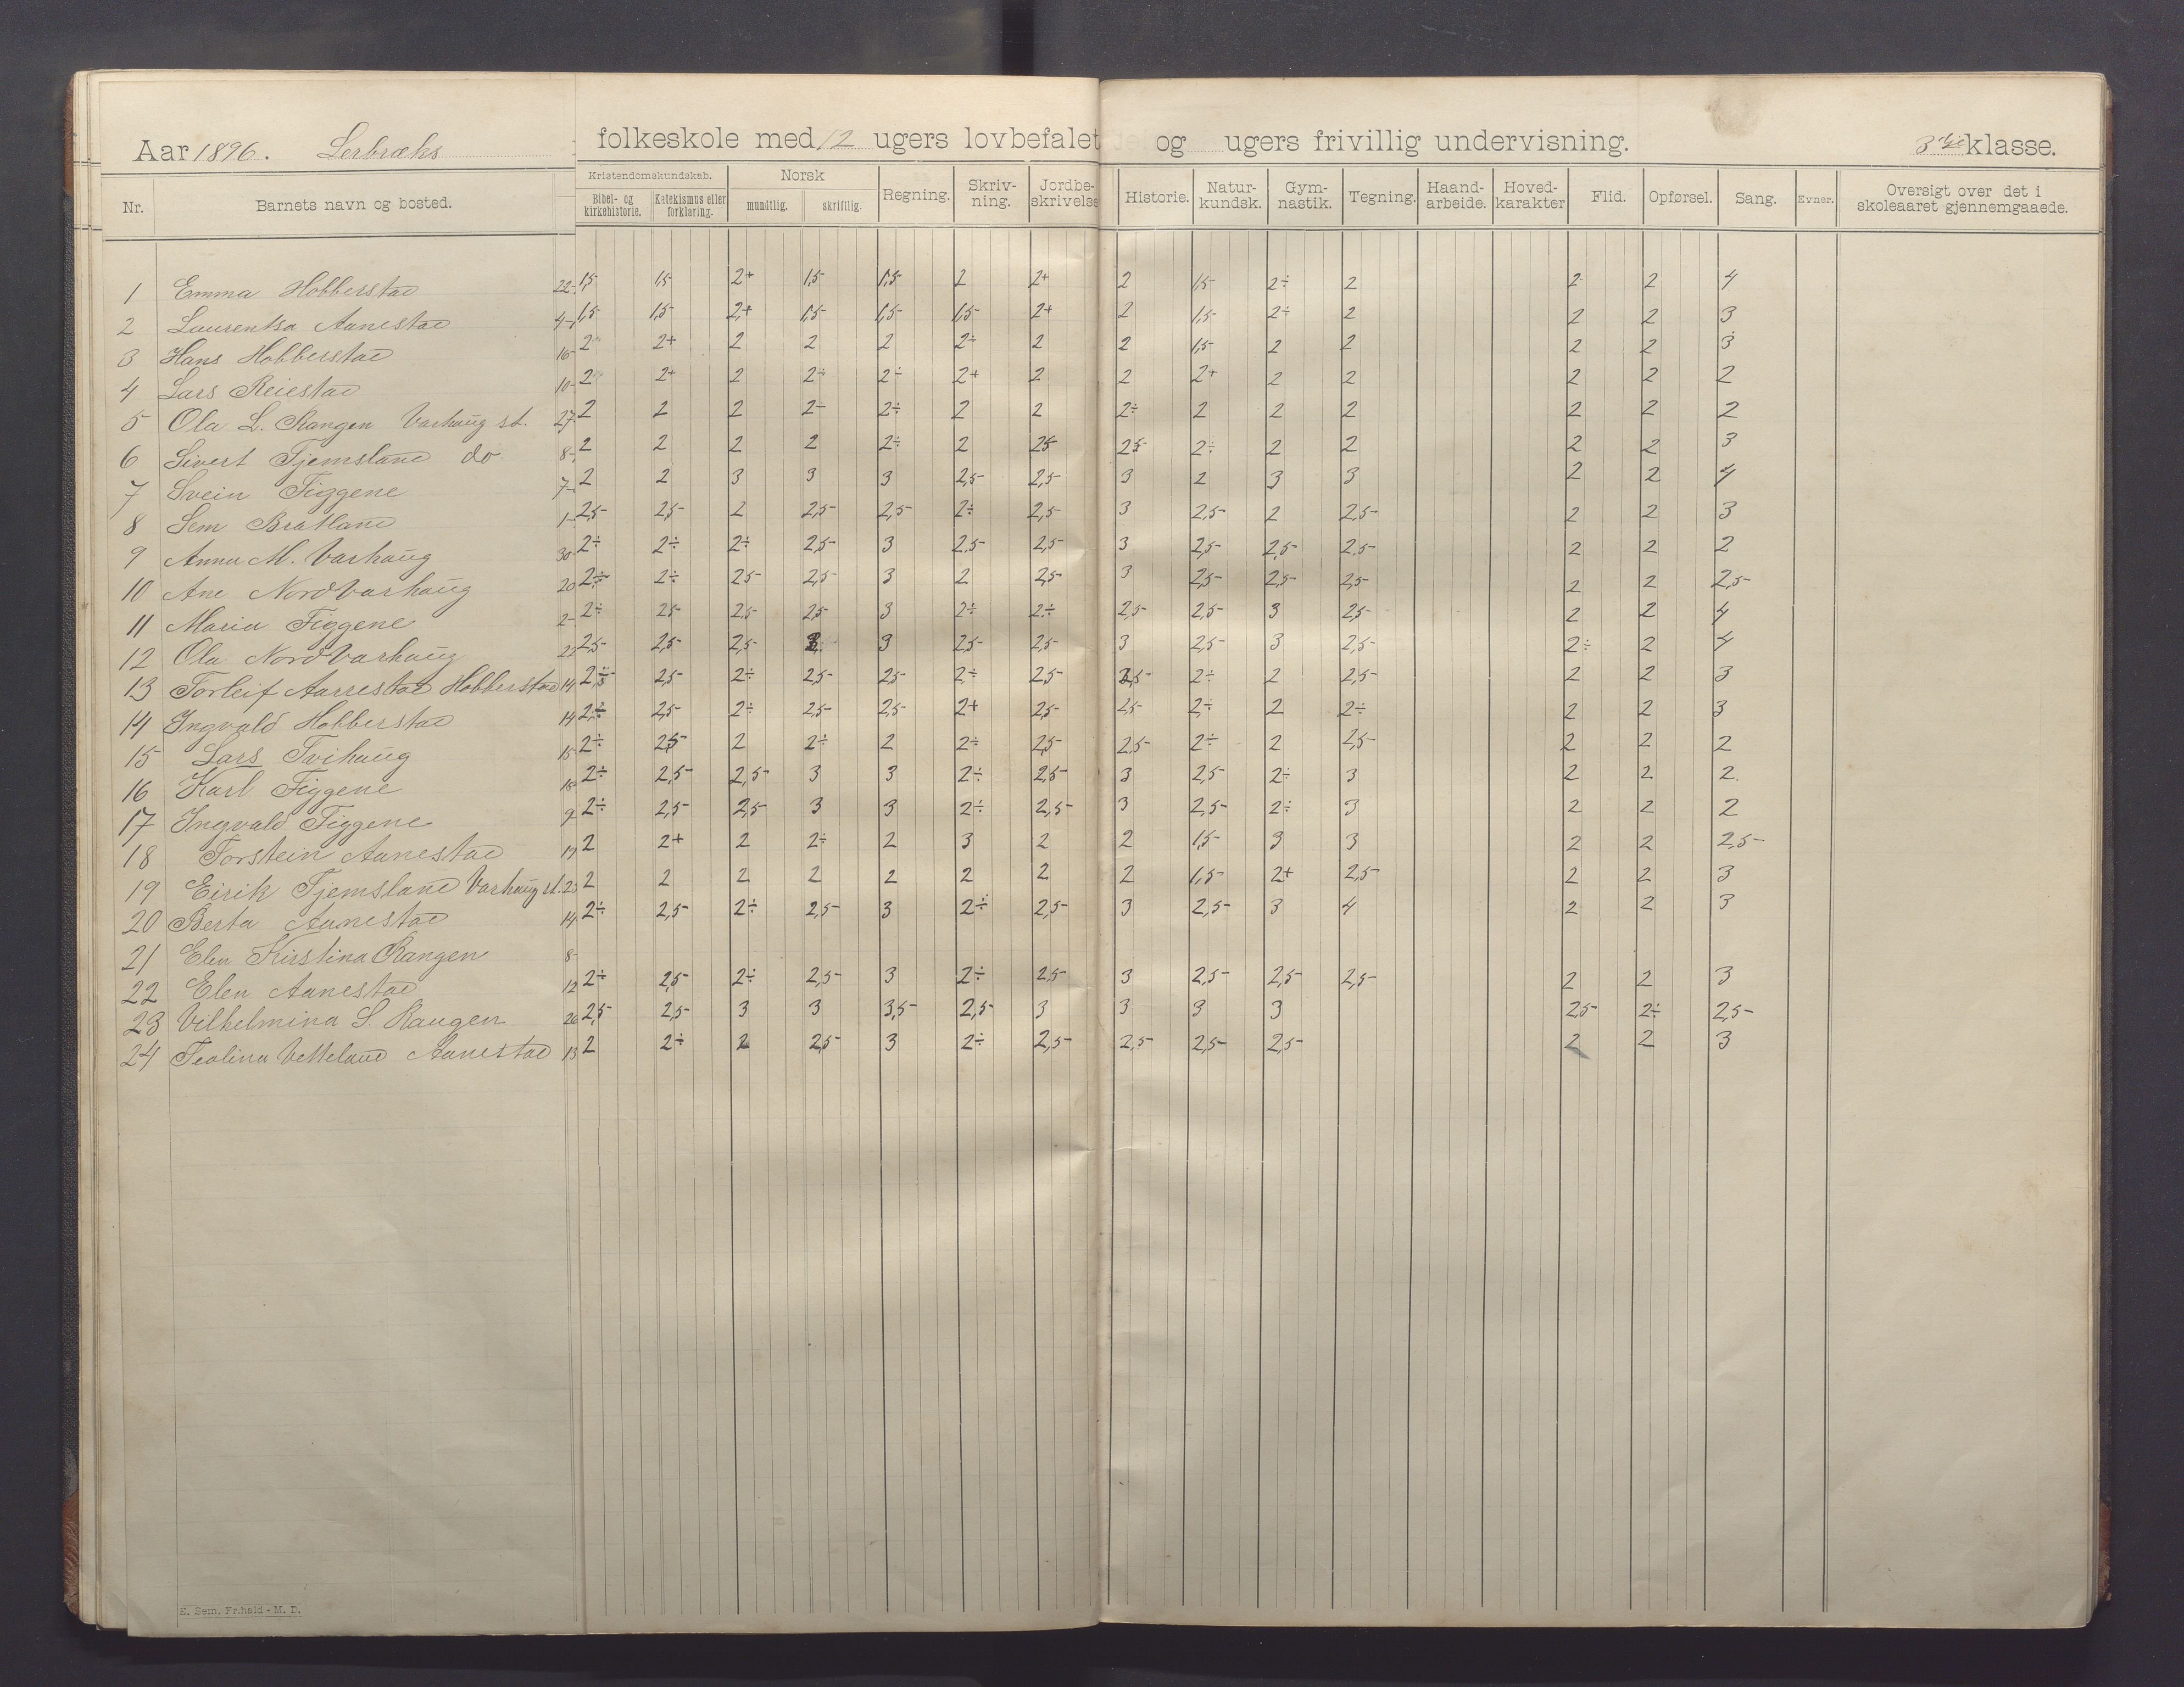 Aar 1896. Lerbræks folkeskole med 12 ugers lovbefalet og ugers frivillig undervisning. 3dje klasse.
Nr. Barnets navn og bosted. Kristendomskundskab. Bibel- og kirkehistorie. Katekismus eller forklaring. Norsk mundtlig. skriftlig. Regning. Skriv-ning. Jordbe-skrivelse Historie. Natur-kundsk. Gym-nastik. Tegning. Haand-arbeide. Hoved-karakter Flid. Opførsel. Sang. Evner. Oversigt over det i skoleaaret gjennemgaaede.
1 Emma Hobberstad 22- 1,5- 1,5- 2+ 1,5- 1,5- 2 2+ 2 1,5- 2÷ 2 2 2 4
2 Laurentsa Aanestad 4- 1,5- 1,5- 2+ 1,5- 1,5- 1,5- 2+ 2 1,5- 2÷ 2 2 2 3
3 Hans Hobberstad 16- 2 2+ 2 2 2 2÷ 2 2 1,5- 2 2 2 2 3
4 Lars Reiestad 10- 2 2+ 2 2÷ 2÷ 2+ 2 2 2+ 2 2 2 2 2
5 Ola L. Rangen Varhaug st. 27- 2 2 2 2- 2÷ 2 2 2÷ 2 2 2 2 2 2
6 Sivert Tjemsland do 8- 2 2 2 2 2÷ 2 25- 25- 2÷ 2 2 2 2 3
7 Svein Tiggene 7- 2 2 3 3 3 2,5- 2,5- 3 2 3 3 2 2 4
8 Sem Bratland 1- 2,5- 2,5- 2 2,5- 2,5- 2÷ 2,5- 3 2,5- 2 2,5- 2 2 3
9 Anna M. Varhaug 30- 2÷ 2÷ 2÷ 2,5- 3 2,5- 2,5- 3 2,5- 2,5- 2,5- 2 2 2
10 Ane Nordvarhaug 20 2÷ 2÷ 25- 2,5- 3 2 2,5- 3 2,5- 2,5- 2,5- 2 2 2,5-
11 Maria Tiggene 2- 2÷ 25- 2,5- 2,5- 3 2÷ 2÷ 2,5- 2,5- 3 2,5- 2 2 4
12 Ola Nordvarhaug 22 2,5- 2,5- 2,5- 3 3 25- 2,5- 3 2,5- 3 2,5- 2÷ 2 4
13 Torleif Aarrestad Hobberstad 14 2,5- 2,5- 2÷ 2,5- 25- 2÷ 25- 2,5- 2÷ 2 2,5- 2 2 3
14 Ingvald Hobberstad 14 2÷ 2,5- 2÷ 2,5- 2,5- 2+ 25- 25- 2÷ 2 2÷ 2 2 3
15 Lars Tvihaug 15- 2÷ 25- 2 2÷ 2 2÷ 25- 2,5- 2÷ 2 2,5- 2 2 2
16 Karl Tiggene 2÷ 2,5- 2,5- 3 3 2÷ 2,5- 3 2,5- 2÷ 3 2 2 2.
17 Ingvald Tiggene 9 2÷ 2,5- 2,5- 3 3 2÷ 2,5- 3 2,5- 2÷ 3 2 2 2
18 Torstein Aanestad 2 2+ 2 2÷ 2 3 2 2 1,5- 3 3 2 2 2,5-
19 Eirik Tjemsland Varhaug st. 2 2 2 2 2 2 2 2 1,5- 2+ 2,5- 2 2 3
20 Berta Aanestad 14 2÷ 2,5- 2÷ 2,5- 3 2÷ 2,5- 3 2,5- 3 4 2 2 3
21 Elen Kirstina Rangen 8-
22 Elen Aanestad 12 2÷ 2,5- 2÷ 2,5- 3 2÷ 2,5- 3 2,5- 2,5- 2,5- 2 2 3
23 Vilhelmina S. Rangen 26 2,5- 2,5- 3 3 3,5- 2,5- 3 3 3 3 2,5- 2÷ 2,5-
24 Tealina Vetteland Aanestad 13 2 2÷ 2 2,5- 3 2÷ 2,5- 2,5- 2,5- 2,5- 2 2 3
E. Sem, Fr.hald - M. D.